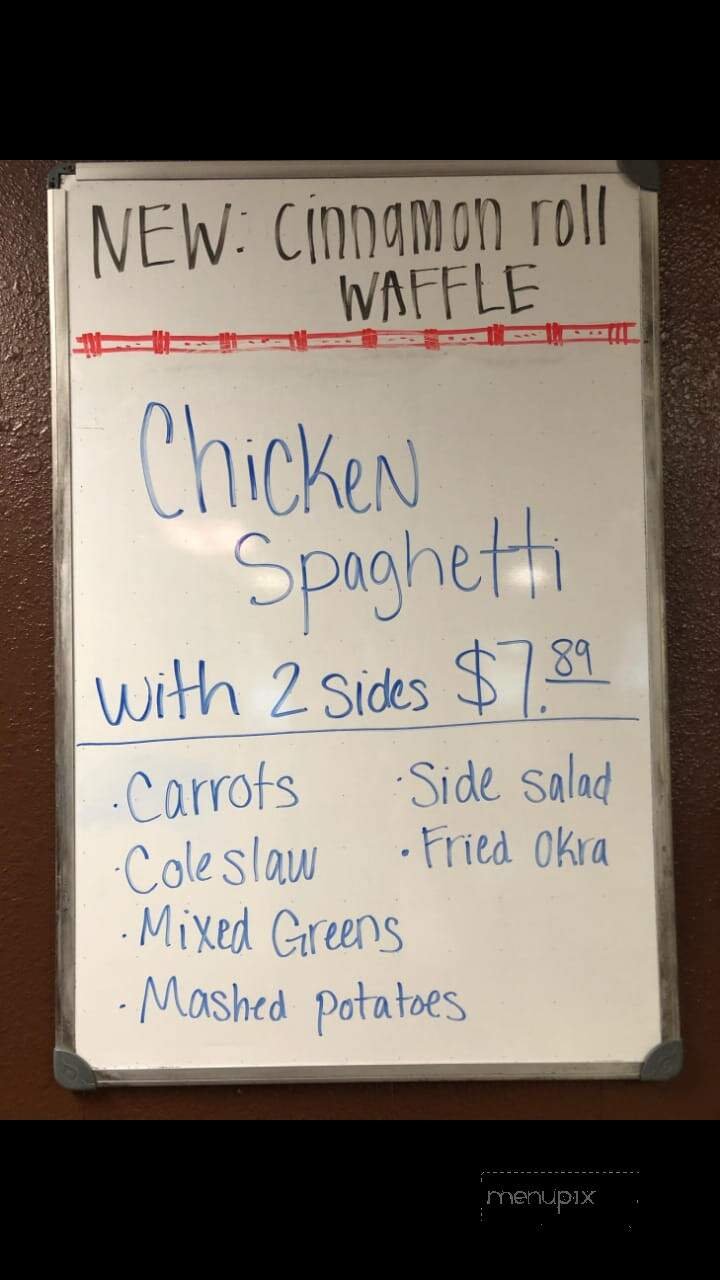 NEW: Cinnamon roll
WAFFLE
Chicken
Spaghetti
with 2 sides $7.89
· Carrots
· Coleslaw
· Mixed Greens
· Mashed potatoes
· Side salad
· Fried Okra
menupix